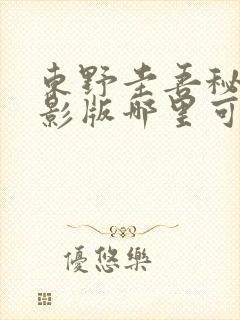 東野圭吾秘
影版哪里可
優悠樂